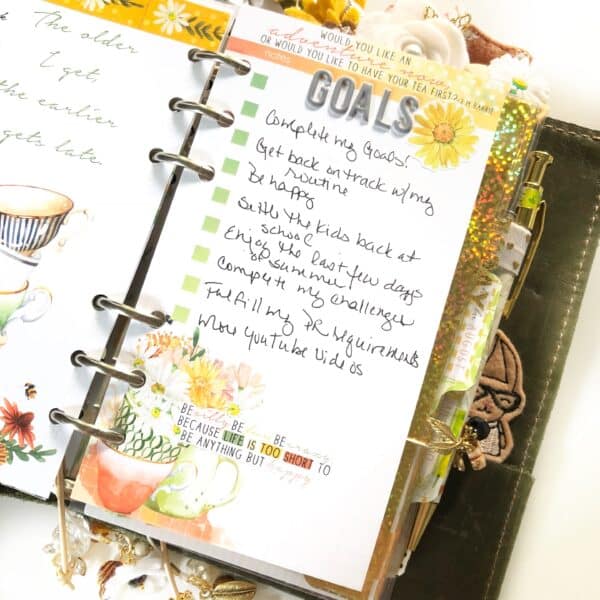 The older
I get,
the earlier
gets late
WOULD YOU LIKE AN
adventure now,
OR WOULD YOU LIKE TO HAVE YOUR TEA FIRST? J.M. BARRIE
notes
GOALS
Complete my Goals!
Get back on track w/ my
routine
Be happy
Settle the kids back at
school
Enjoy the last few days
of summer
Complete my challenges
Fulfill my PR requirements
More YouTube Videos
BE silly BE fun BE crazy
BECAUSE LIFE IS TOO SHORT TO
BE ANYTHING BUT happy
AUGUST